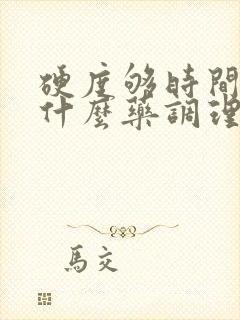 硬度够時間
什麼藥調理
馬交